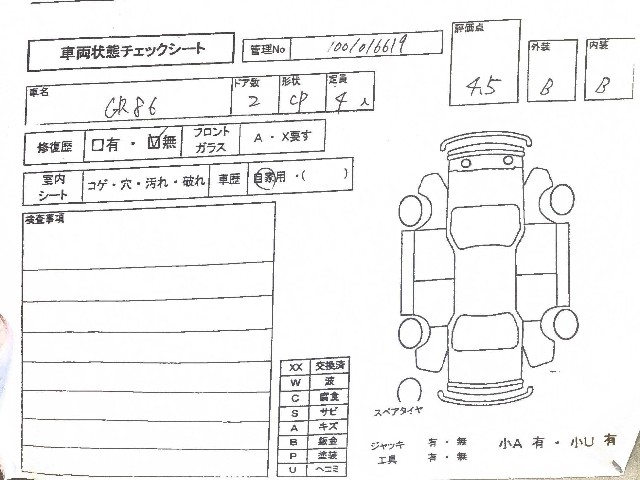 車両状態チェックシート
管理No 1001016619
評価点 4.5
外装 B
内装 B
車名 GR86
ドア数 2
形状 CP
定員 4人
修復歴 □有・☑無
フロントガラス A・X要す
室内シート コゲ・穴・汚れ・破れ
車歴 自家用・( )
検査事項
XX 交換済
W 波
C 腐食
S サビ
A キズ
B 鈑金
P 塗装
U ヘコミ
スペアタイヤ
ジャッキ 有・無
工具 有・無
小A 有・小U 有